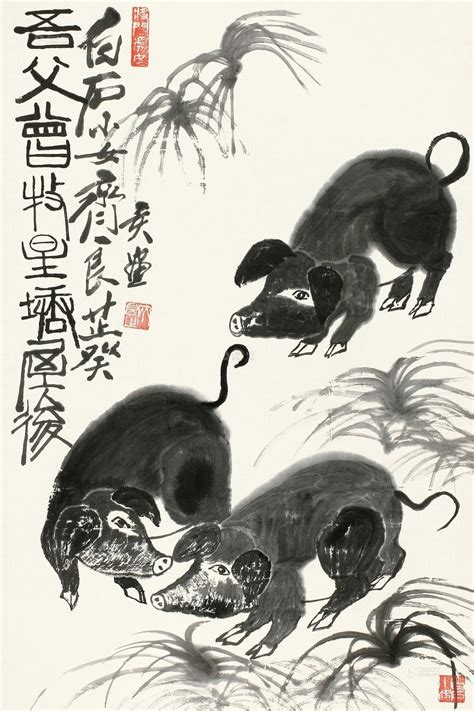 吾父曾牧星塘屋後
白石小女齊良芷癸
亥畫